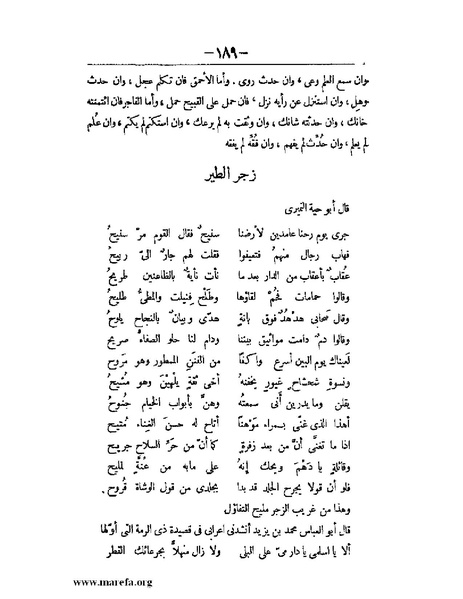 — ١٨٩ —
وان سمع العلم وعى ، وان حدث روى . وأما الأحمق فان تكلم عجل ، وان حدث
وهل ، وان استنزل عن رأيه نزل ، فان حمل على القبيح حمل ، وأما الفاجر فان ائتمنته
خانك ، وان حدثته شانك ، وان وثقت به لم يرعك ، وان استكتم لم يكتم ، وان عُلم
لم يعلم ، وان حُدّث لم يفهم ، وان فقّه لم يفقه
زجر الطير
قال أبو حية النميرى
جرى يوم رحنا عامدين لأرضنا سنيحٌ فقال القوم مرّ سنيحُ
فهاب رجال منهمُ فتعيفوا فقلت لهم جارٌ الىّ ربيحُ
عُقابٌ بأعقاب من الدار بعد ما نأت نأيةٌ بالظاعنين طريحُ
وقالوا حمامات فحُمَّ لقاؤها وطلح فنيلت والمطىُّ طليحُ
وقال صحابى هدهُدٌ فوق بانةٍ هدًى وبيانٌ بالنجاح يلوحُ
وقالوا دمٌ دامت مواثيق بيننا ودام لنا حلو الصفاء صريح
لَعيناك يوم البين أسرع واكفًا من الفنن الممطور وهو مَروح
ونسوةِ شحشاح غيور يخفنهُ أخى ثقةٍ يلهينَ وهو مُشيحُ
يقلن وما يدرين أنى سمعتُه وهنَّ بأبواب الخيام جنوحُ
أهذا الذى غنّى بسمراء مَوْهنًا أتاح له حسنَ الغناء مُتيح
اذا ما تغنَّى أنّ من بعد زفرةٍ كما أنّ من حرّ السلاح جريح
وقائلةٍ يا دَهْمَ ويحك إنهُ على مابه من عُنّةٍ لمليح
فلو أن قولا يجرح الجلد قد بدا بجلدى من قول الوشاة قُروح
وهذا من غريب الزجر مليح التفاؤل
قال أبو العباس محمد بن يزيد أنشدنى اعرابى فى قصيدة ذى الرمة التى أولها
ألا يا اسلمى يا دارمىّ على البلى ولا زال منهلاًّ بجرعائك القطر
www.marefa.org